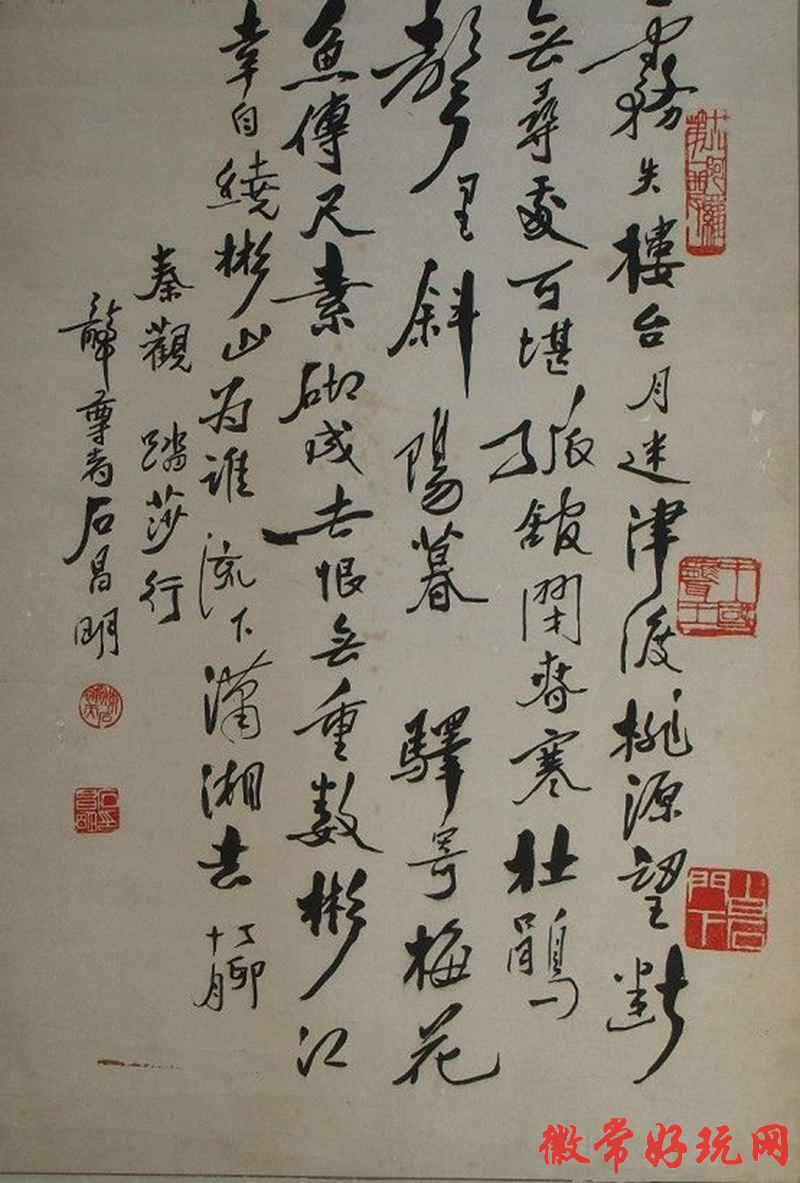 霧失樓台月迷津渡桃源望斷
無尋處可堪孤館閉春寒杜鵑
聲里斜陽暮 驛寄梅花
魚傳尺素砌成去恨無重數彬江
幸自繞彬山为誰流下瀟湘去 丁卯
十月
秦觀 踏莎行
尊者石昌明
徽常好玩网